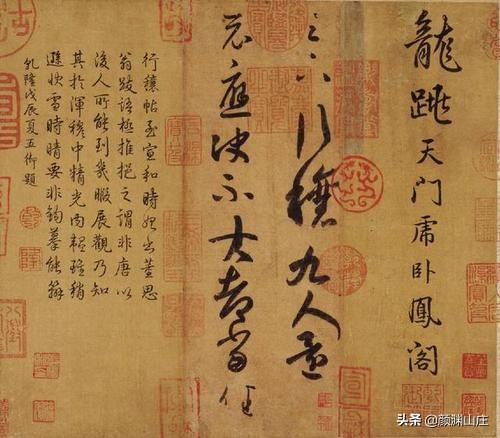 龍跳天門虎臥鳳閣
足下行穰九人還
示應決不大都當任
行穰帖至宣和時始出董思
翁跋語極推挹之謂非唐以
後人所能到幾暇展觀乃知
其於渾穆中精光內韞雖稍
遜快雪時晴要非鉤摹能辦
乾隆戊辰夏五御題
头条 @颜渊山庄